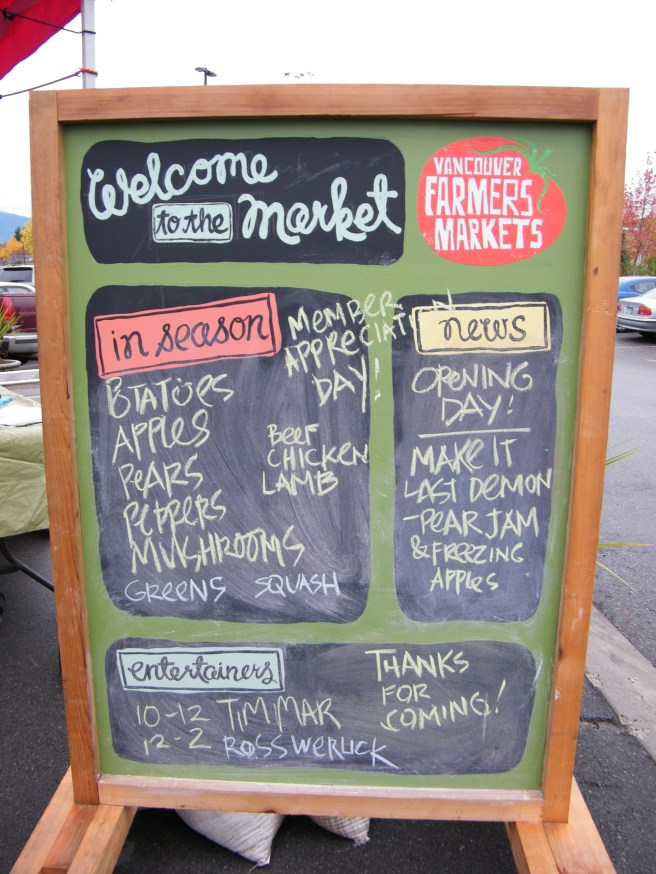 Welcome
to the market
VANCOUVER
FARMERS
MARKETS
in season
POTATOES
APPLES
PEARS
PEPPERS
MUSHROOMS
GREENS SQUASH
MEMBER
APPRECIATION
DAY!
BEEF
CHICKEN
LAMB
news
OPENING
DAY!
MAKE IT
LAST DEMON
-PEAR JAM
& FREEZING
APPLES
entertainers
10-12 TIM MAR
12-2 ROSS WERLICK
THANKS
FOR
COMING!